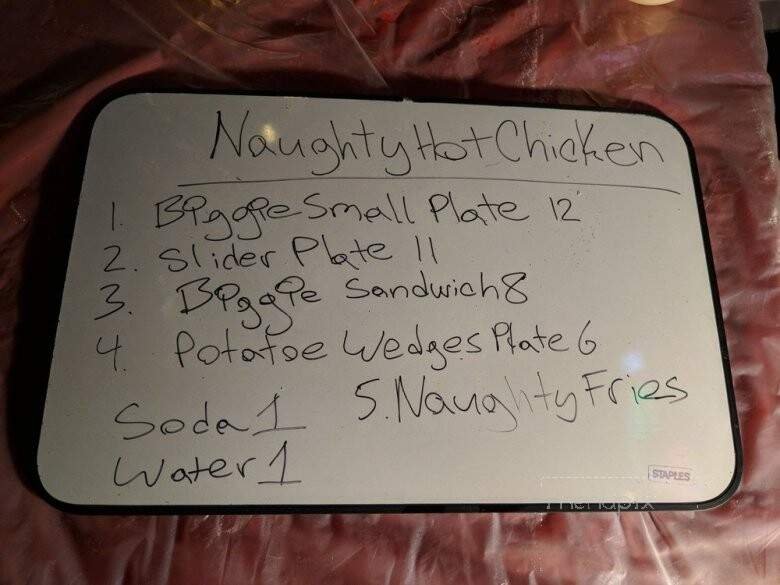 Naughty Hot Chicken
1. Biggie Small Plate 12
2. Slider Plate 11
3. Biggie Sandwich 8
4 Potatoe Wedges Plate 6
5. Naughty Fries
Soda 1
Water 1
STAPLES